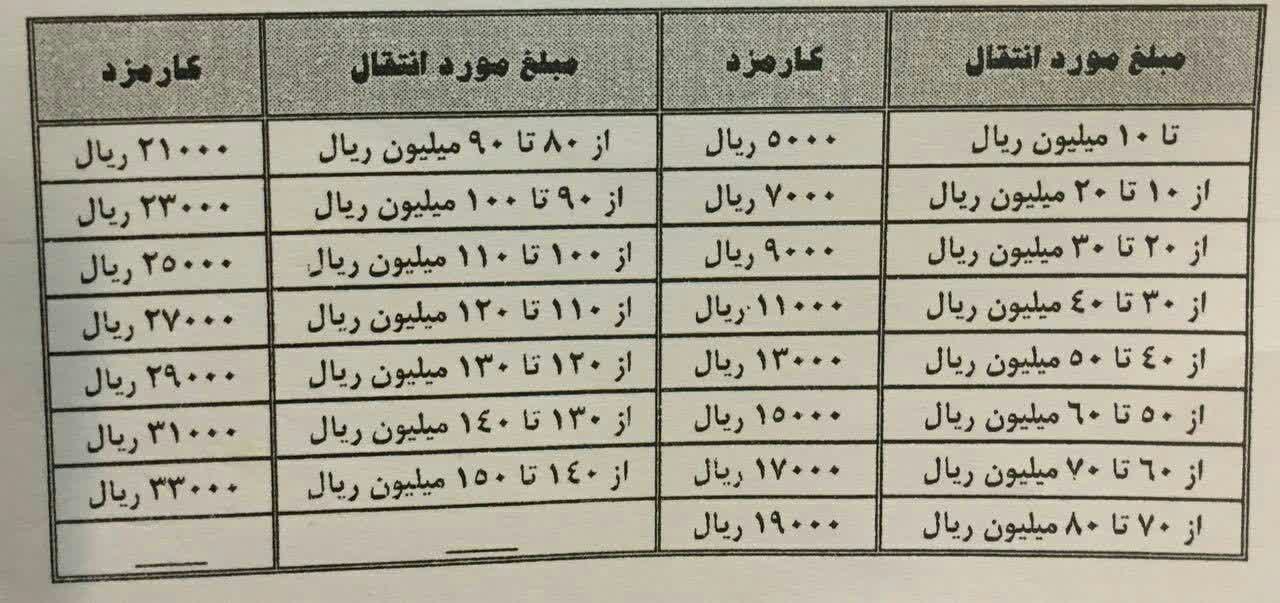 مبلغ مورد انتقال کارمزد مبلغ مورد انتقال کارمزد
تا ۱۰ میلیون ریال ۵۰۰۰ ریال از ۸۰ تا ۹۰ میلیون ریال ۲۱۰۰۰ ریال
از ۱۰ تا ۲۰ میلیون ریال ۷۰۰۰ ریال از ۹۰ تا ۱۰۰ میلیون ریال ۲۳۰۰۰ ریال
از ۲۰ تا ۳۰ میلیون ریال ۹۰۰۰ ریال از ۱۰۰ تا ۱۱۰ میلیون ریال ۲۵۰۰۰ ریال
از ۳۰ تا ۴۰ میلیون ریال ۱۱۰۰۰ ریال از ۱۱۰ تا ۱۲۰ میلیون ریال ۲۷۰۰۰ ریال
از ۴۰ تا ۵۰ میلیون ریال ۱۳۰۰۰ ریال از ۱۲۰ تا ۱۳۰ میلیون ریال ۲۹۰۰۰ ریال
از ۵۰ تا ۶۰ میلیون ریال ۱۵۰۰۰ ریال از ۱۳۰ تا ۱۴۰ میلیون ریال ۳۱۰۰۰ ریال
از ۶۰ تا ۷۰ میلیون ریال ۱۷۰۰۰ ریال از ۱۴۰ تا ۱۵۰ میلیون ریال ۳۳۰۰۰ ریال
از ۷۰ تا ۸۰ میلیون ریال ۱۹۰۰۰ ریال